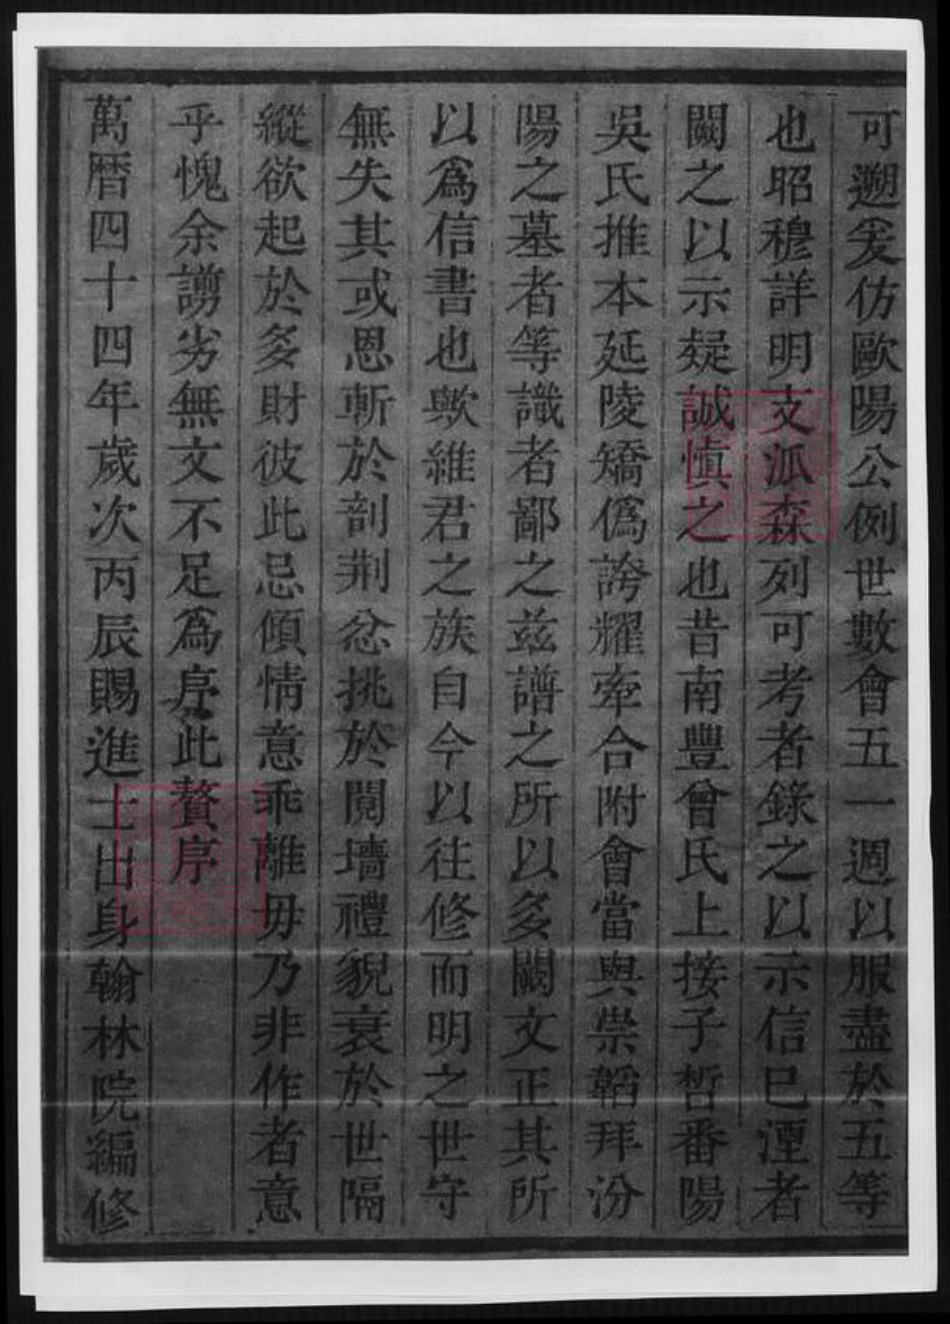 可遡爰仿歐陽公例世數會五一週以服盡於五等
也昭穆詳明支派森列可考者錄之以示信已湮者
闕之以示疑誠慎之也昔南豐曾氏上接子晳番陽
吳氏推本延陵矯僞誇耀牽合附會當與崇韜拜汾
陽之墓者等識者鄙之兹譜之所以多闕文正其所
以爲信書也歟維君之族自今以往修而明之世守
無失其或恩斬於剖荆忿挑於鬩墻禮貌衰於世隔
縱欲起於多財彼此忌傾情意乖離毋乃非作者意
乎愧余謭劣無文不足爲序此贅序
萬曆四十四年歲次丙辰賜進士出身翰林院編修